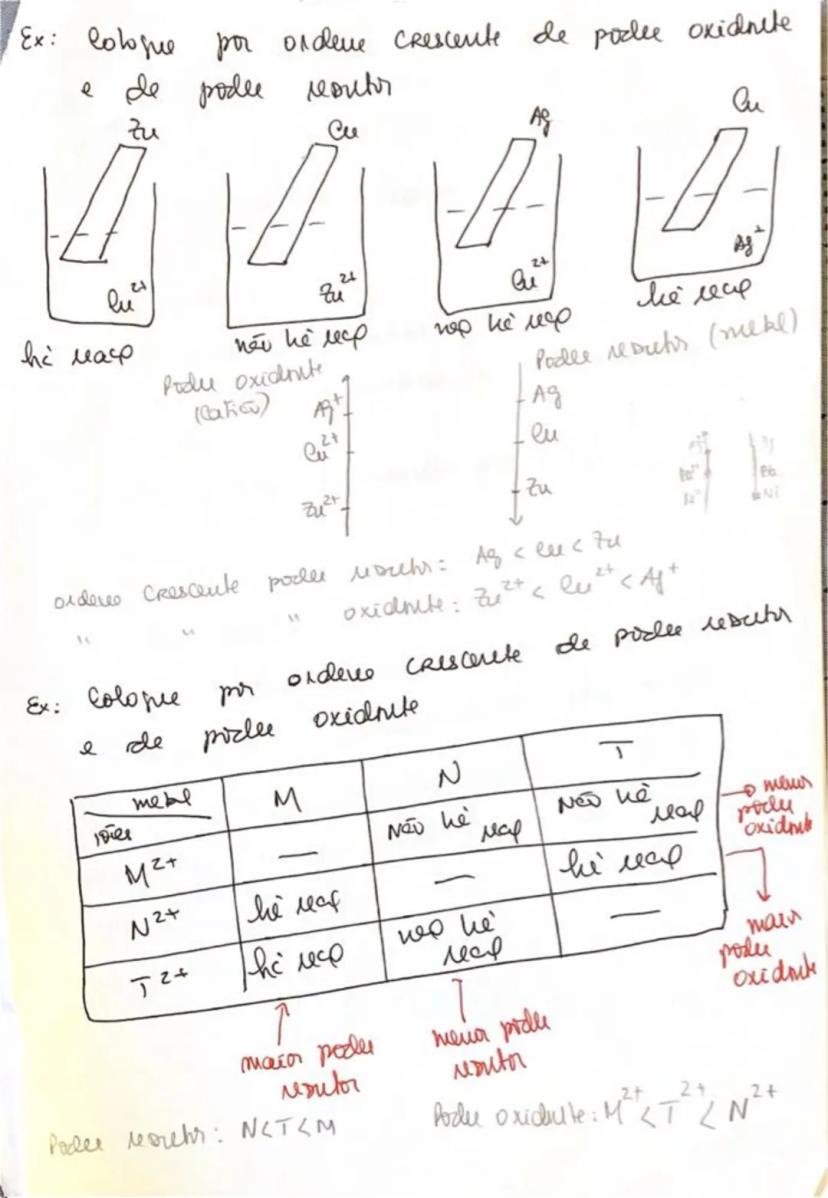 Ex: Coloque por ordem crescente de poder oxidante
e de poder redutor
Zn Cu Ag Cu
Cu²⁺ Zn²⁺ Cu²⁺ Ag⁺
há reação não há reação não há reação há reação
Poder oxidante (catião)
Ag⁺
Cu²⁺
Zn²⁺
Poder redutor (metal)
Ag
Cu
Zn
ordem crescente poder redutor: Ag < Cu < Zn
" " " oxidante: Zn²⁺ < Cu²⁺ < Ag⁺
Ex: Coloque por ordem crescente de poder redutor
e de poder oxidante
metal M N T
iões
M²⁺ — Não há reação Não há reação
N²⁺ há reação — há reação
T²⁺ há reação não há reação —
→ menor poder oxidante
maior poder oxidante
maior poder redutor
menor poder redutor
Poder redutor: N<T<M
Poder oxidante: M²⁺ < T²⁺ < N²⁺